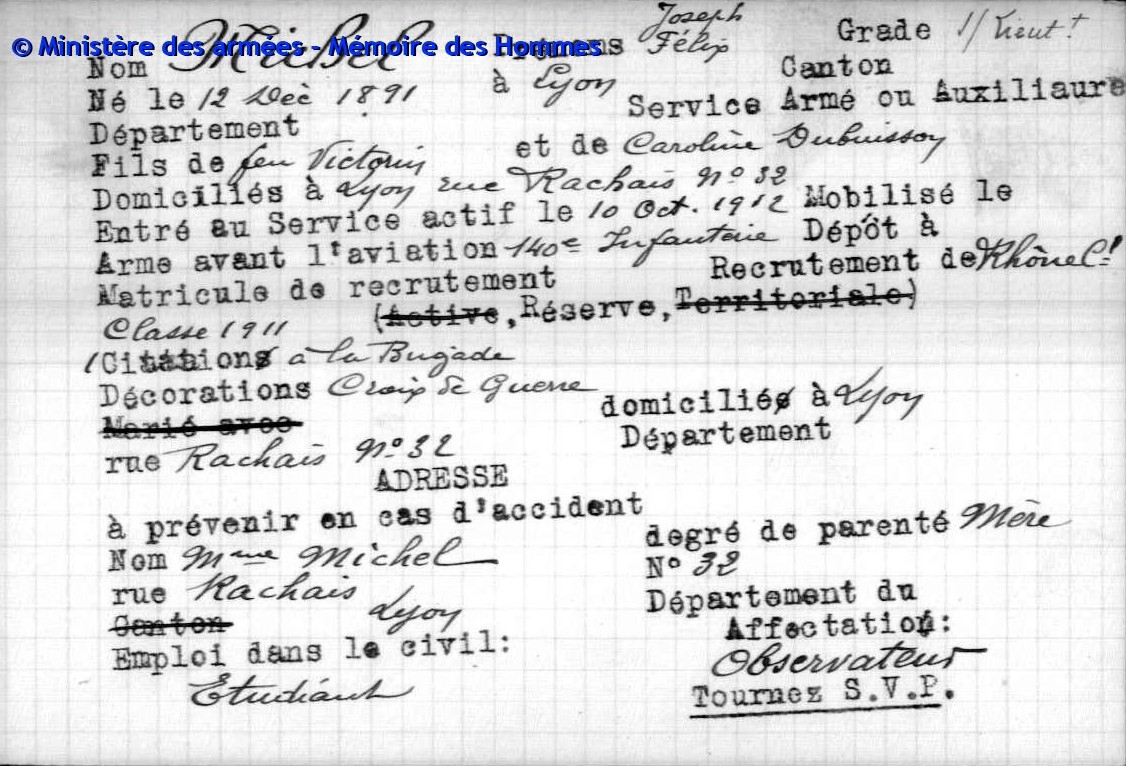 © Ministère des armées - Mémoire des Hommes
Nom Michel Prénoms Joseph Félix Grade s/Lieut t
Né le 12 Dec 1891 à Lyon Canton
Département Service Armé ou Auxiliaure
Fils de feu Victorin et de Caroline Dubuisson
Domiciliés à Lyon rue Rachais N° 32
Entré au Service actif le 10 Oct. 1912 Mobilisé le
Arme avant l'aviation 140e Infanterie Dépôt à
Matricule de recrutement Recrutement de Rhône Cl
Classe 1911 (Active, Réserve, Territoriale)
1 Citation à la Brigade
Décorations Croix de Guerre
Marié avec domicilié à Lyon
rue Rachais N° 32 Département
ADRESSE
à prévenir en cas d'accident
Nom Mme Michel degré de parenté Mère
rue Rachais N° 32
Canton Lyon Département du
Emploi dans le civil: Affectation:
Etudiant Observateur
Tournez S.V.P.